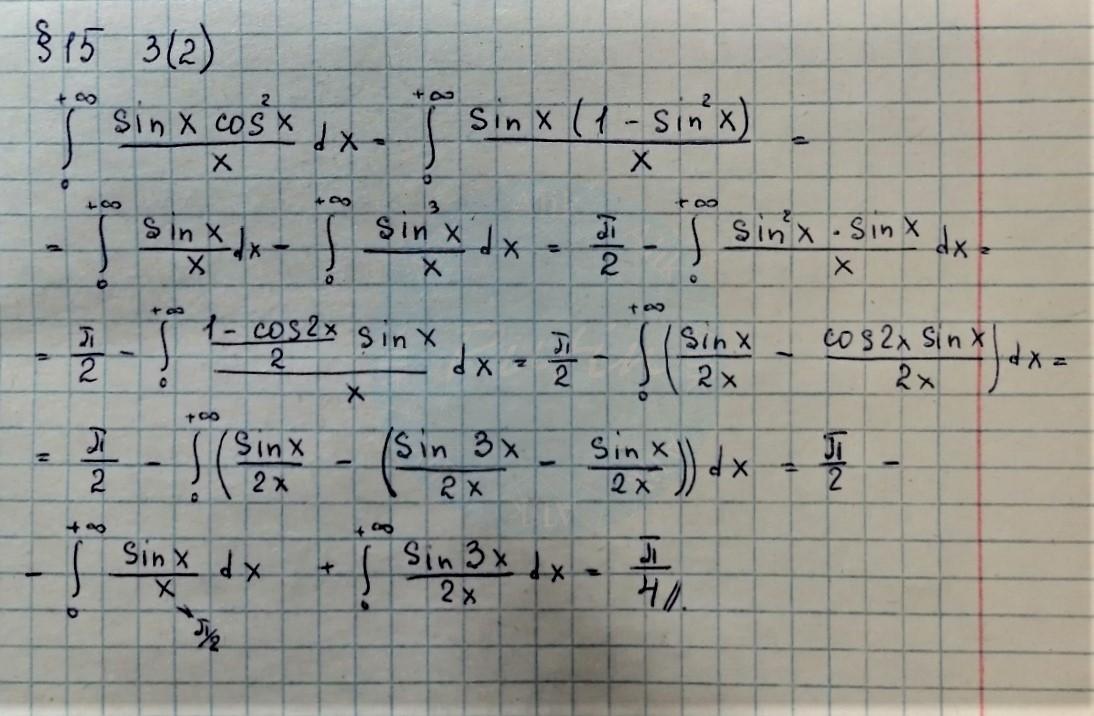 § 15 3(2)
∫₀^{+∞} (sin x cos²x)/x dx = ∫₀^{+∞} (sin x (1 - sin²x))/x =
= ∫₀^{+∞} (sin x)/x dx - ∫₀^{+∞} (sin³x)/x dx = π/2 - ∫₀^{+∞} (sin²x · sin x)/x dx =
= π/2 - ∫₀^{+∞} ((1 - cos2x)/2 sin x)/x dx = π/2 - ∫₀^{+∞} ((sin x)/(2x) - (cos2x sin x)/(2x)) dx =
= π/2 - ∫₀^{+∞} ((sin x)/(2x) - ((sin 3x)/(2x) - (sin x)/(2x))) dx = π/2 -
- ∫₀^{+∞} (sin x)/x dx + ∫₀^{+∞} (sin 3x)/(2x) dx = π/4 //.
π/2